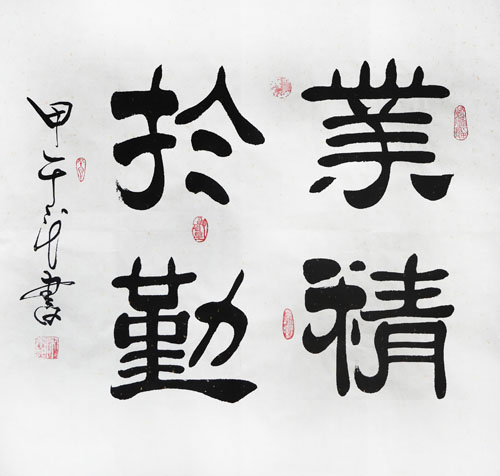 業精
於勤
甲午
書